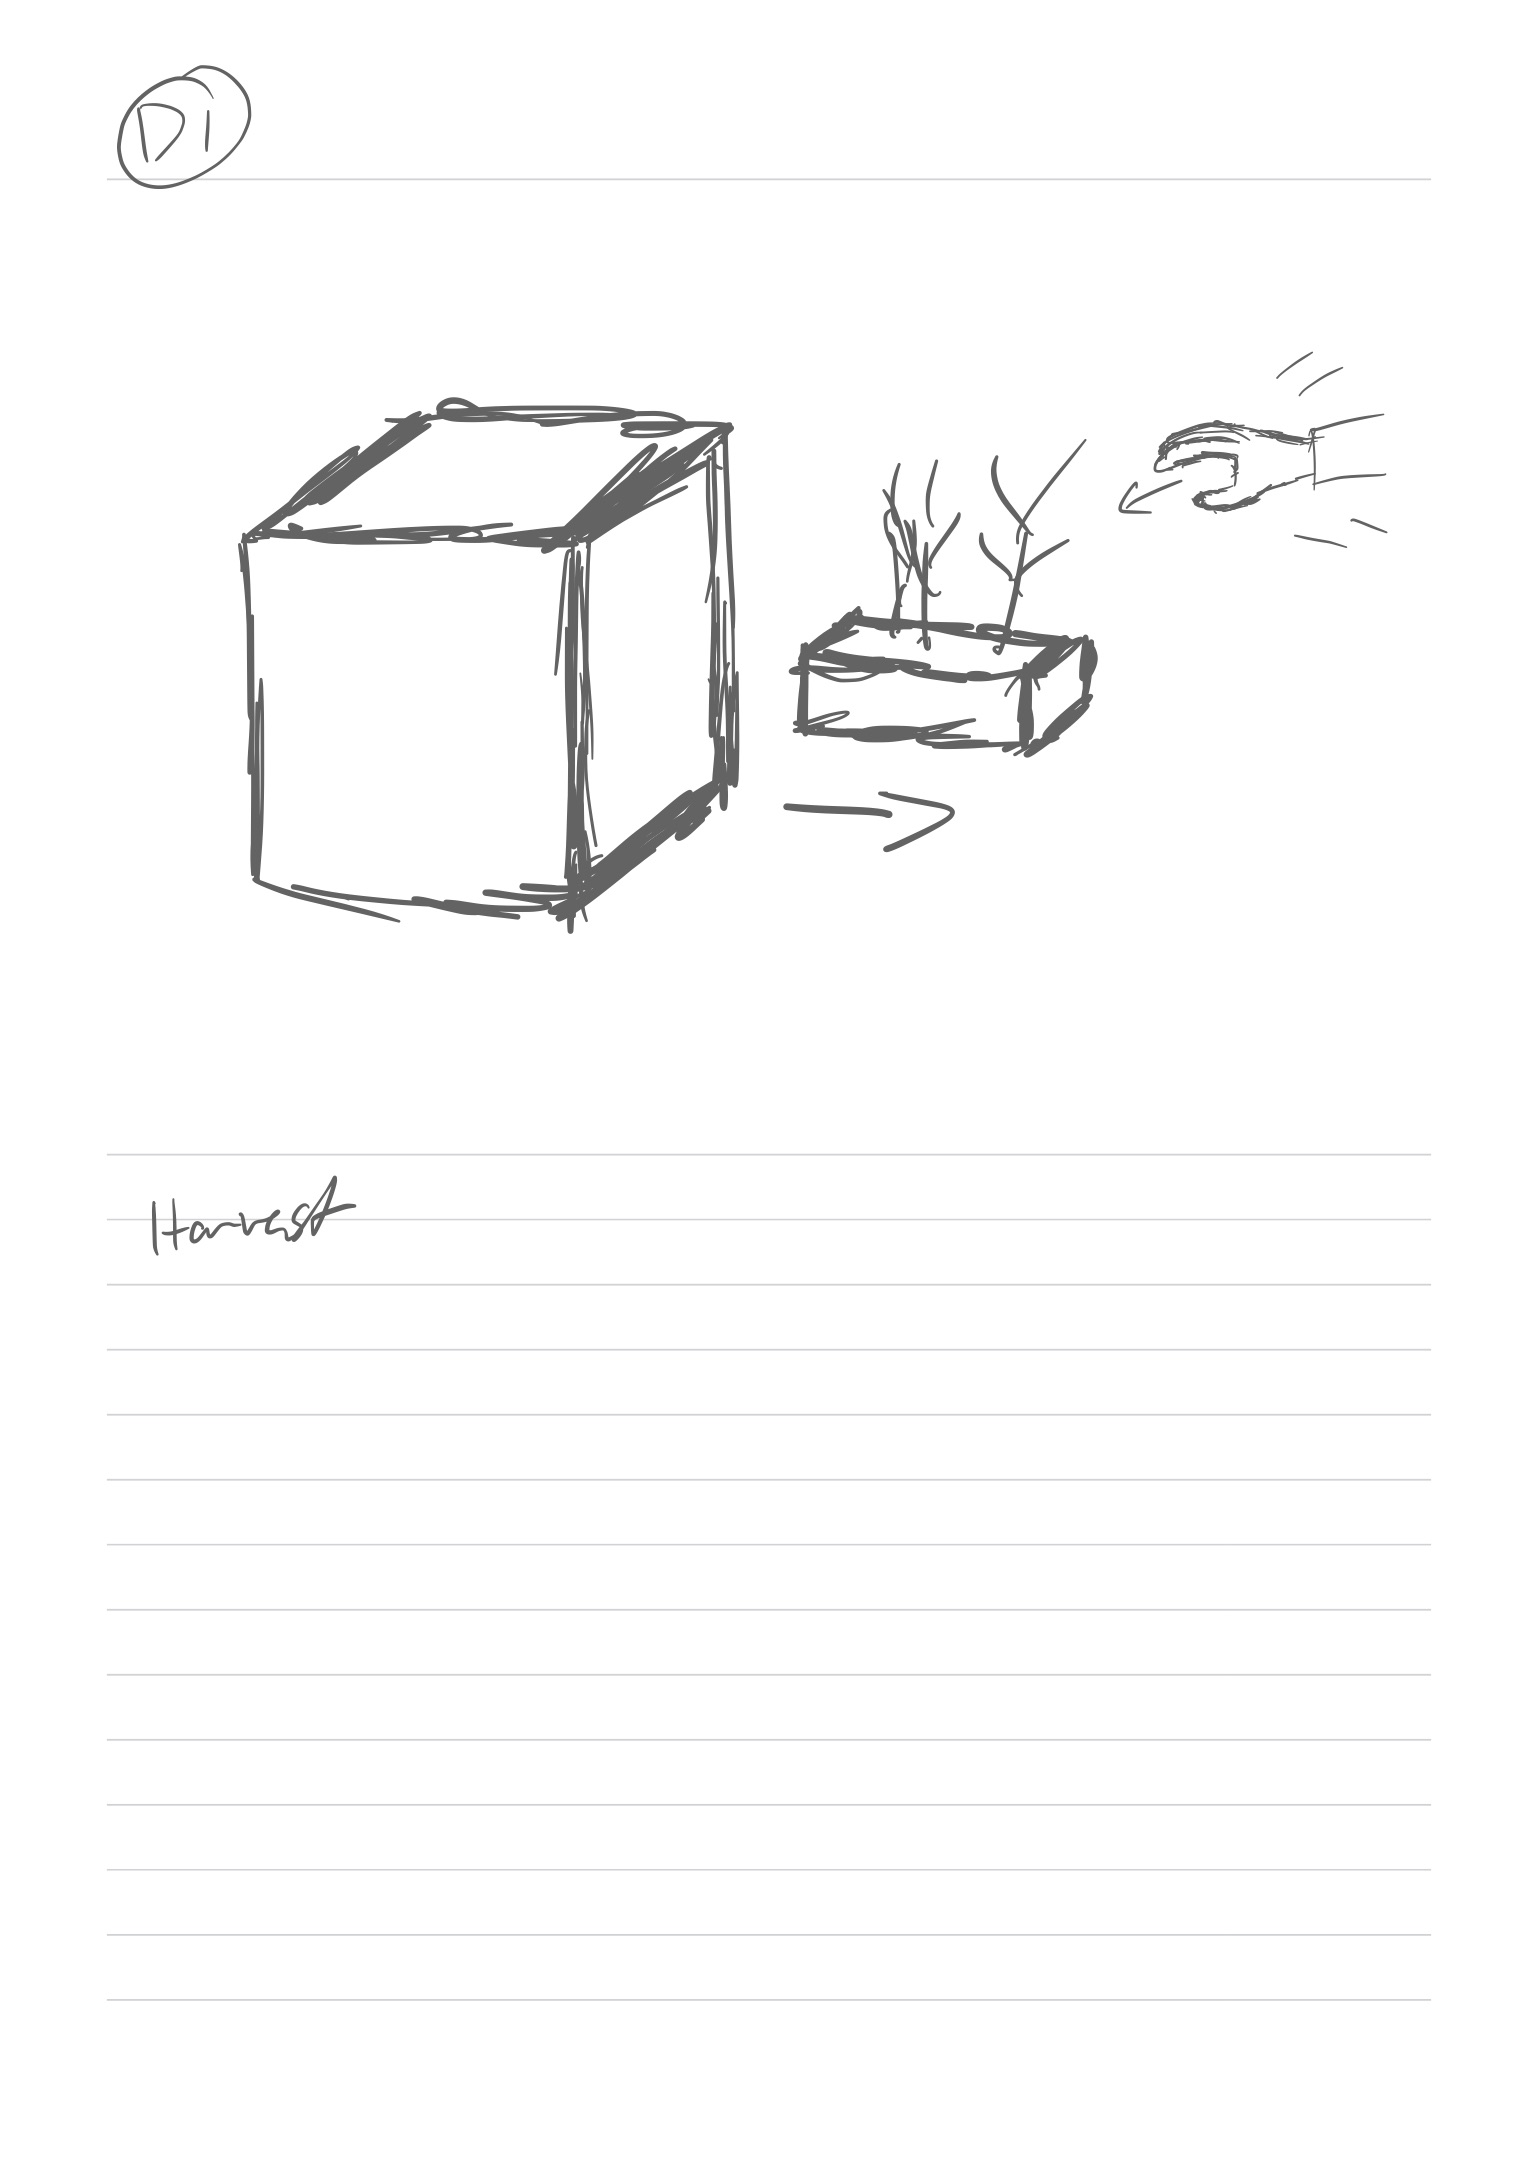 D1
Harvest